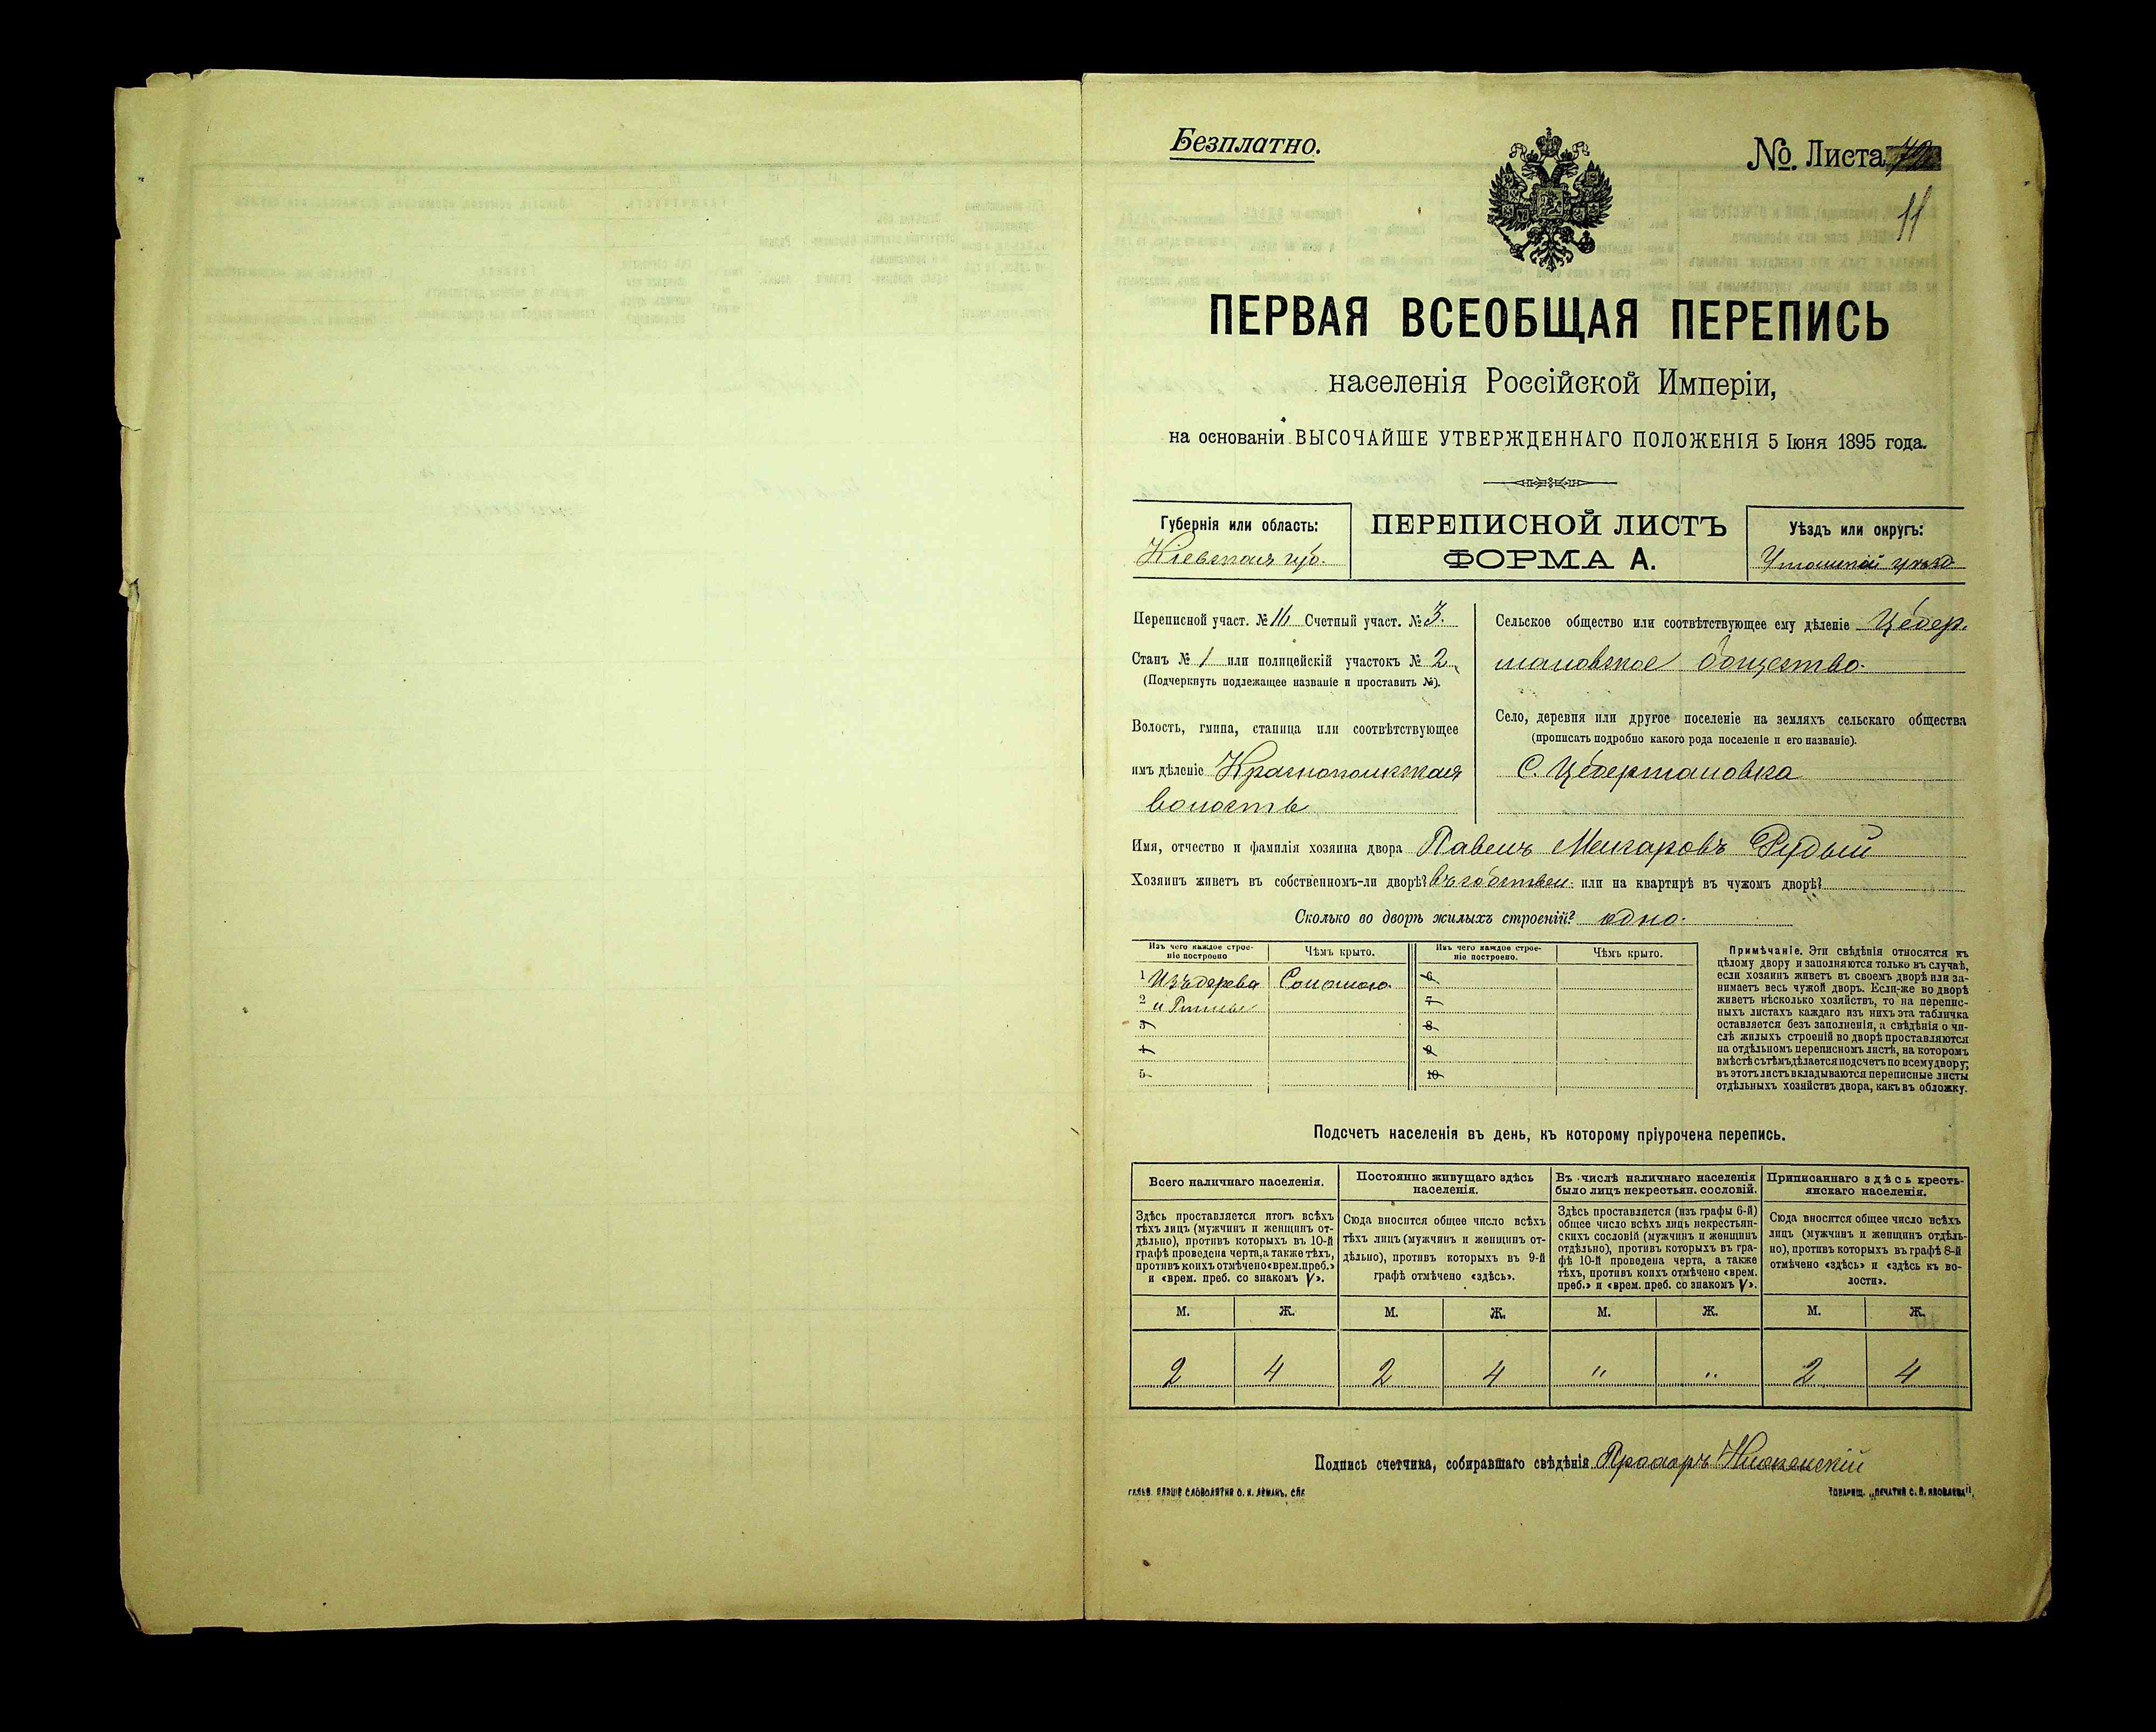 Безплатно.
№ Листа
11
ПЕРВАЯ ВСЕОБЩАЯ ПЕРЕПИСЬ
населенія Россійской Имперіи,
на основаніи ВЫСОЧАЙШЕ УТВЕРЖДЕННАГО ПОЛОЖЕНІЯ 5 Іюня 1895 года.
Губернія или область:
Кіевская губ.
ПЕРЕПИСНОЙ ЛИСТЪ
ФОРМА А.
Уѣздъ или округъ:
Уманскій уѣздъ
Переписной участ. № 11 Счетный участ. № 3.
Станъ № 1 или полицейскій участокъ № 2
(Подчеркнуть подлежащее названіе и проставить №).
Волость, гмина, станица или соотвѣтствующее
имъ дѣленіе Краснопольская
волость
Сельское общество или соотвѣтствующее ему дѣленіе Цебер
мановское общество.
Село, деревня или другое поселеніе на земляхъ сельскаго общества
(прописать подробно какого рода поселеніе и его названіе).
С. Цебермановка
Имя, отчество и фамилія хозяина двора Павелъ Макаровъ Рудый
Хозяинъ живетъ въ собственномъ-ли дворѣ? въ собствен. или на квартирѣ въ чужомъ дворѣ?
Сколько во дворѣ жилыхъ строеній? одно.
Изъ чего каждое строе-
ніе построено
Чѣмъ крыто.
Изъ чего каждое строе-
ніе построено.
Чѣмъ крыто.
1 Изъ дерева Соломою. 6
2 и Глины 7
3 8
4 9
5 10
Примѣчаніе. Эти свѣдѣнія относятся къ
цѣлому двору и заполняются только въ случаѣ,
если хозяинъ живетъ въ своемъ дворѣ или за-
нимаетъ весь чужой дворъ. Если-же во дворѣ
живетъ нѣсколько хозяйствъ, то на перепис-
ныхъ листахъ каждаго изъ нихъ эта табличка
оставляется безъ заполненія, а свѣдѣнія о чи-
слѣ жилыхъ строеній во дворѣ проставляются
на отдѣльномъ переписномъ листѣ, на которомъ
вмѣстѣ съ тѣмъ дѣлается подсчетъ по всему двору;
въ этотъ листъ вкладываются переписные листы
отдѣльныхъ хозяйствъ двора, какъ въ обложку.
Подсчетъ населенія въ день, къ которому пріурочена перепись.
Всего наличнаго населенія.
Постоянно живущаго здѣсь
населенія.
Въ числѣ наличнаго населенія
было лицъ некрестьян. сословій.
Приписаннаго здѣсь кресть-
янскаго населенія.
Здѣсь проставляется итогъ всѣхъ
тѣхъ лицъ (мужчинъ и женщинъ от-
дѣльно), противъ которыхъ въ 10-й
графѣ проведена черта, а также тѣхъ,
противъ коихъ отмѣчено «врем. преб.»
и «врем. преб. со знакомъ V».
Сюда вносится общее число всѣхъ
тѣхъ лицъ (мужчинъ и женщинъ от-
дѣльно), противъ которыхъ въ 9-й
графѣ отмѣчено «здѣсь».
Здѣсь проставляется (изъ графы 6-й)
общее число всѣхъ лицъ некрестьян-
скихъ сословій (мужчинъ и женщинъ
отдѣльно), противъ которыхъ въ гра-
фѣ 10-й проведена черта, а также
тѣхъ, противъ коихъ отмѣчено «врем.
преб.» и «врем. преб. со знакомъ V».
Сюда вносится общее число всѣхъ
лицъ (мужчинъ и женщинъ отдѣль-
но), противъ которыхъ въ графѣ 8-й
отмѣчено «здѣсь» и «здѣсь къ во-
лости».
М. Ж. М. Ж. М. Ж. М. Ж.
2 4 2 4 " " 2 4
Подпись счетчика, собиравшаго свѣдѣнія Прохоръ
ГАЛЬВ. КЛИШЕ СЛОВОЛИТНИ О. И. ЛЕМАНЪ, СПБ
ТОВАРИЩ. „ПЕЧАТНЯ С. П. ЯКОВЛЕВА".